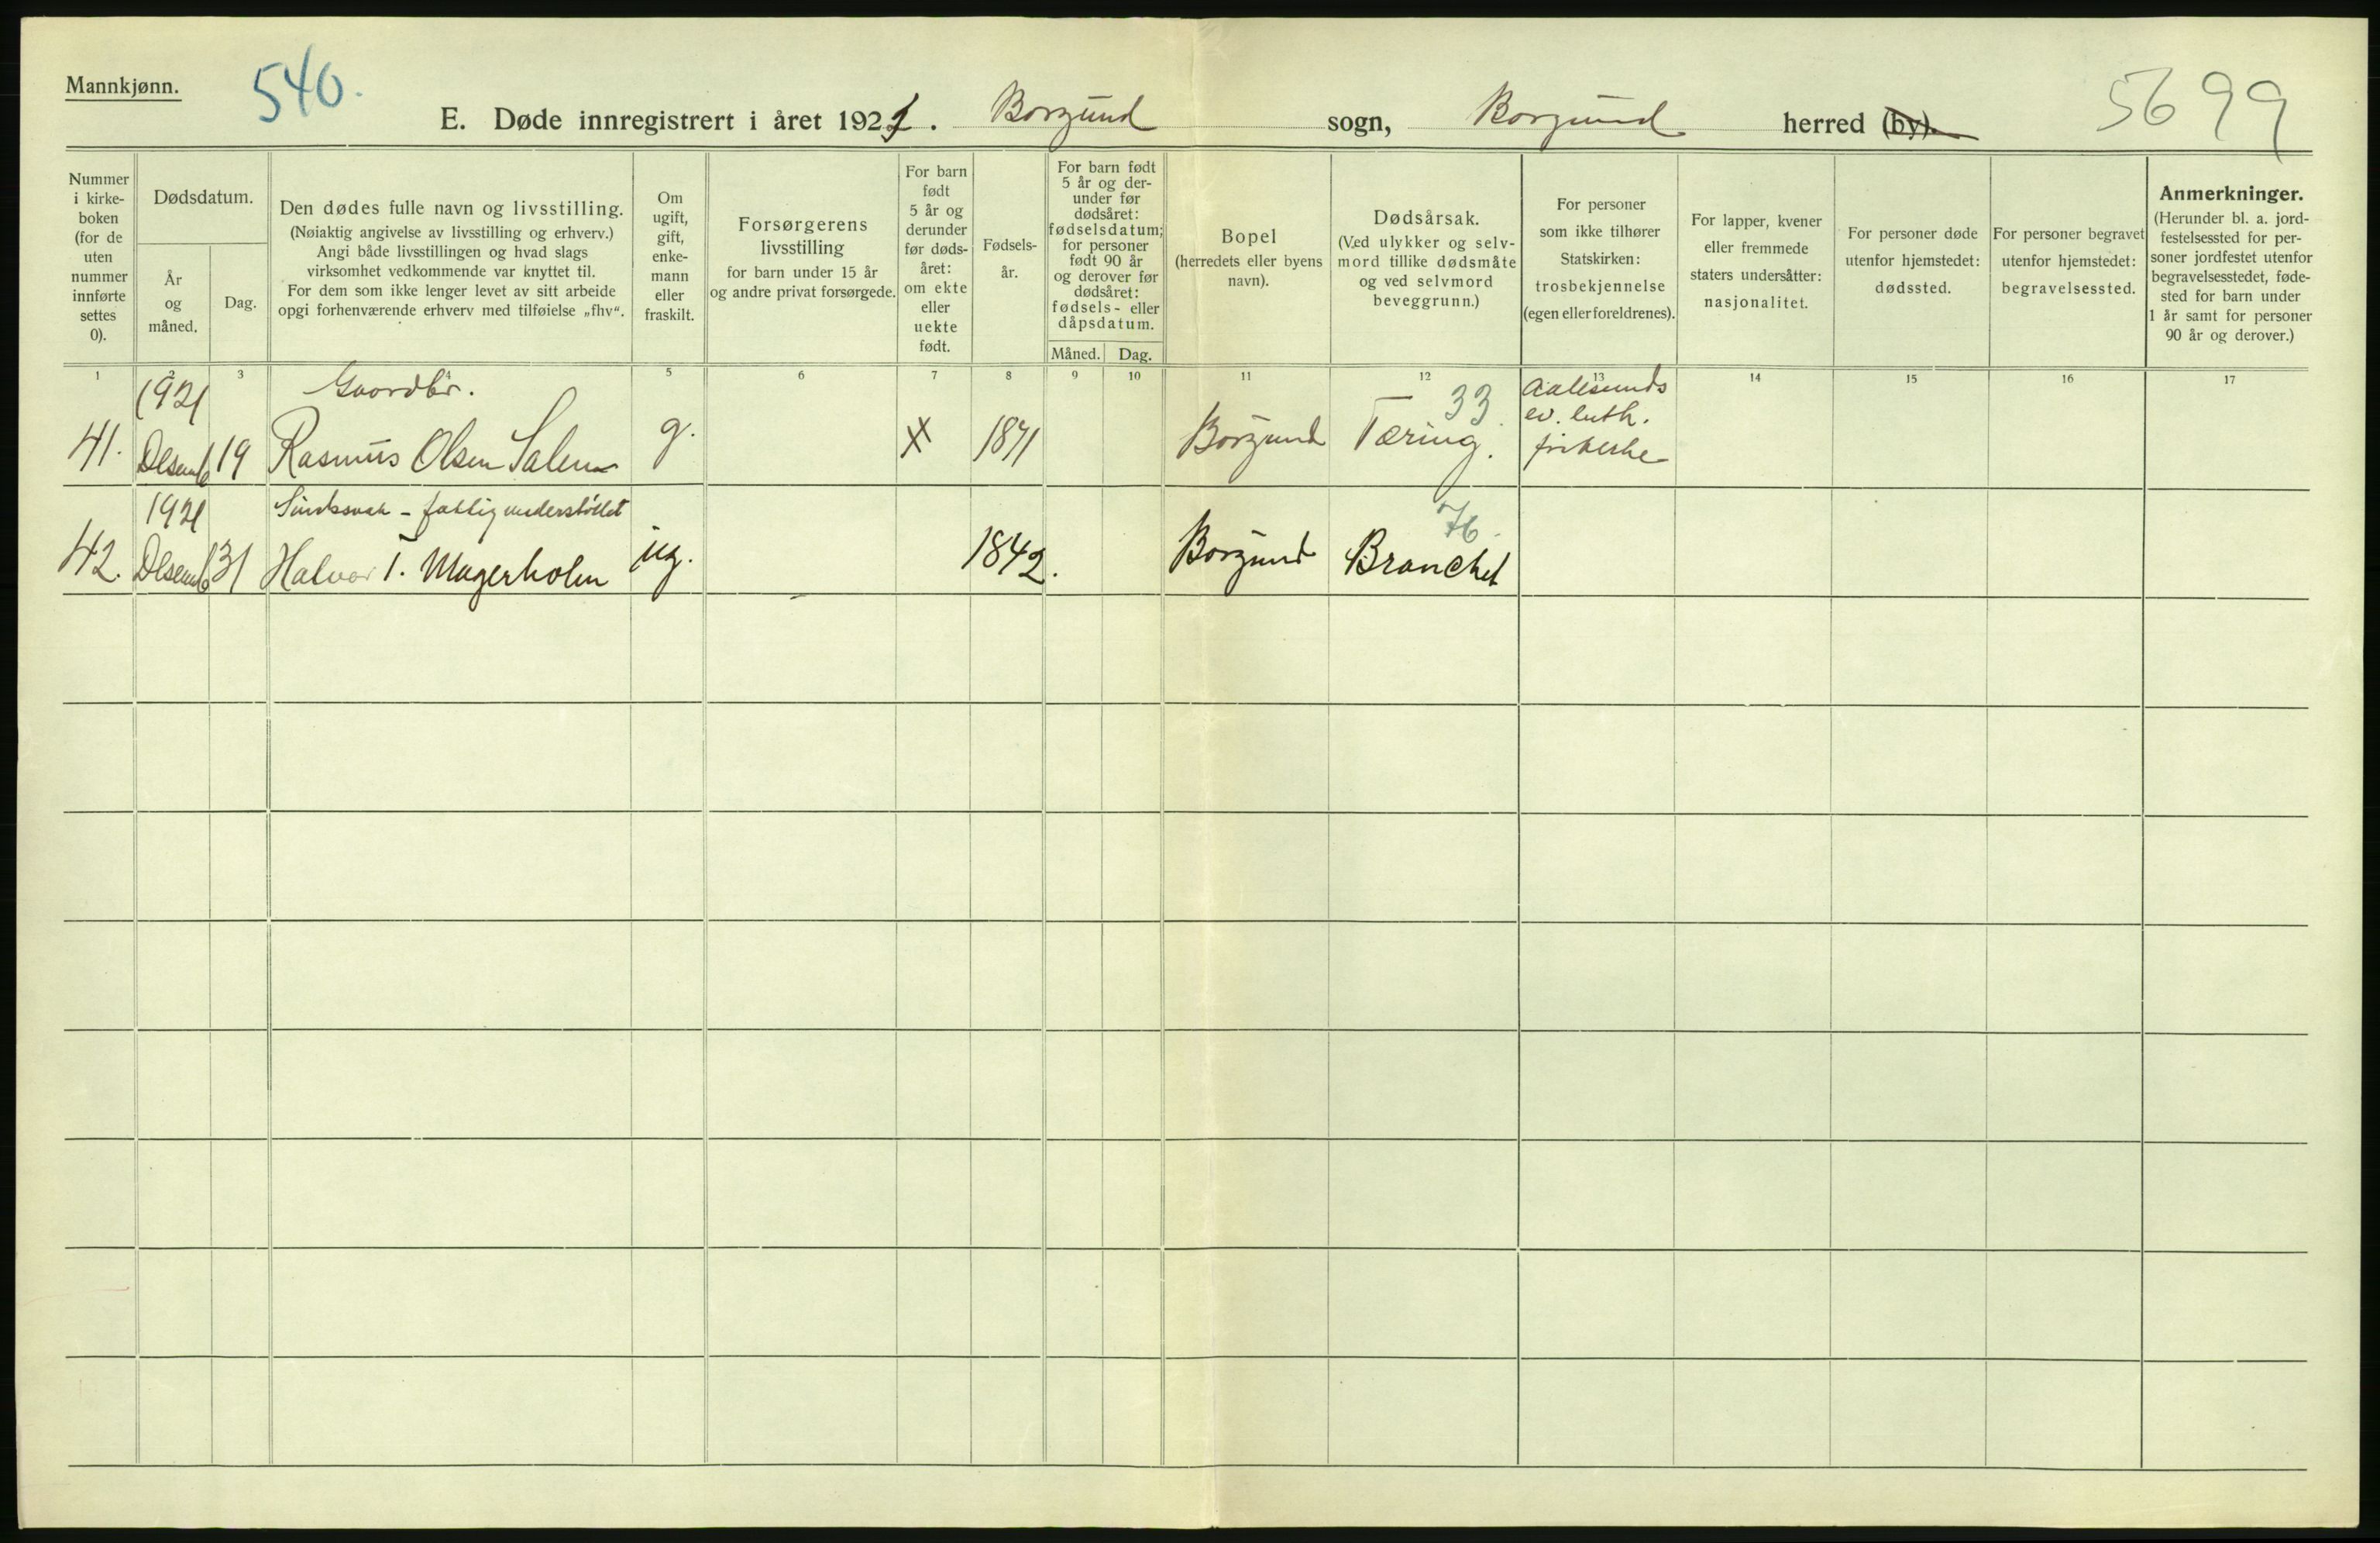 Mannkjønn.
540.
5699
E. Døde innregistrert i året 1921. Borgund sogn, Borgund herred (by).
Nummer i kirke-boken (for de uten nummer innførte settes 0).
Dødsdatum.
År og måned.
Dag.
Den dødes fulle navn og livsstilling.
(Nøiaktig angivelse av livsstilling og erhverv.)
Angi både livsstillingen og hvad slags
virksomhet vedkommende var knyttet til.
For dem som ikke lenger levet av sitt arbeide
opgi forhenværende erhverv med tilføielse „fhv“.
Om ugift, gift, enke-mann eller fraskilt.
Forsørgerens livsstilling
for barn under 15 år
og andre privat forsørgede.
For barn født 5 år og derunder før døds-året: om ekte eller uekte født.
Fødsels-år.
For barn født 5 år og der-under før dødsåret: fødselsdatum; for personer født 90 år og derover før dødsåret: fødsels- eller dåpsdatum.
Måned.
Dag.
Bopel
(herredets eller byens navn).
Dødsårsak.
(Ved ulykker og selv-mord tillike dødsmåte og ved selvmord beveggrunn.)
For personer som ikke tilhører Statskirken: trosbekjennelse (egen eller foreldrenes).
For lapper, kvener eller fremmede staters undersåtter: nasjonalitet.
For personer døde utenfor hjemstedet: dødssted.
For personer begravet utenfor hjemstedet: begravelsessted.
Anmerkninger.
(Herunder bl. a. jord-festelsessted for per-soner jordfestet utenfor begravelsesstedet, føde-sted for barn under 1 år samt for personer 90 år og derover.)
1 2 3 4 5 6 7 8 9 10 11 12 13 14 15 16 17
1921 Gaardbr. 33 Aalesunds
ev. luth.
41. Desemb 19 Rasmus Olsen Salen g. X 1871 Borgund Tæring. frikirke
1921 Sindssvak - fattigunderstøttet 76.
42. Desemb 31 Halvor I. Magerholm ug. 1842. Borgund Bronchit